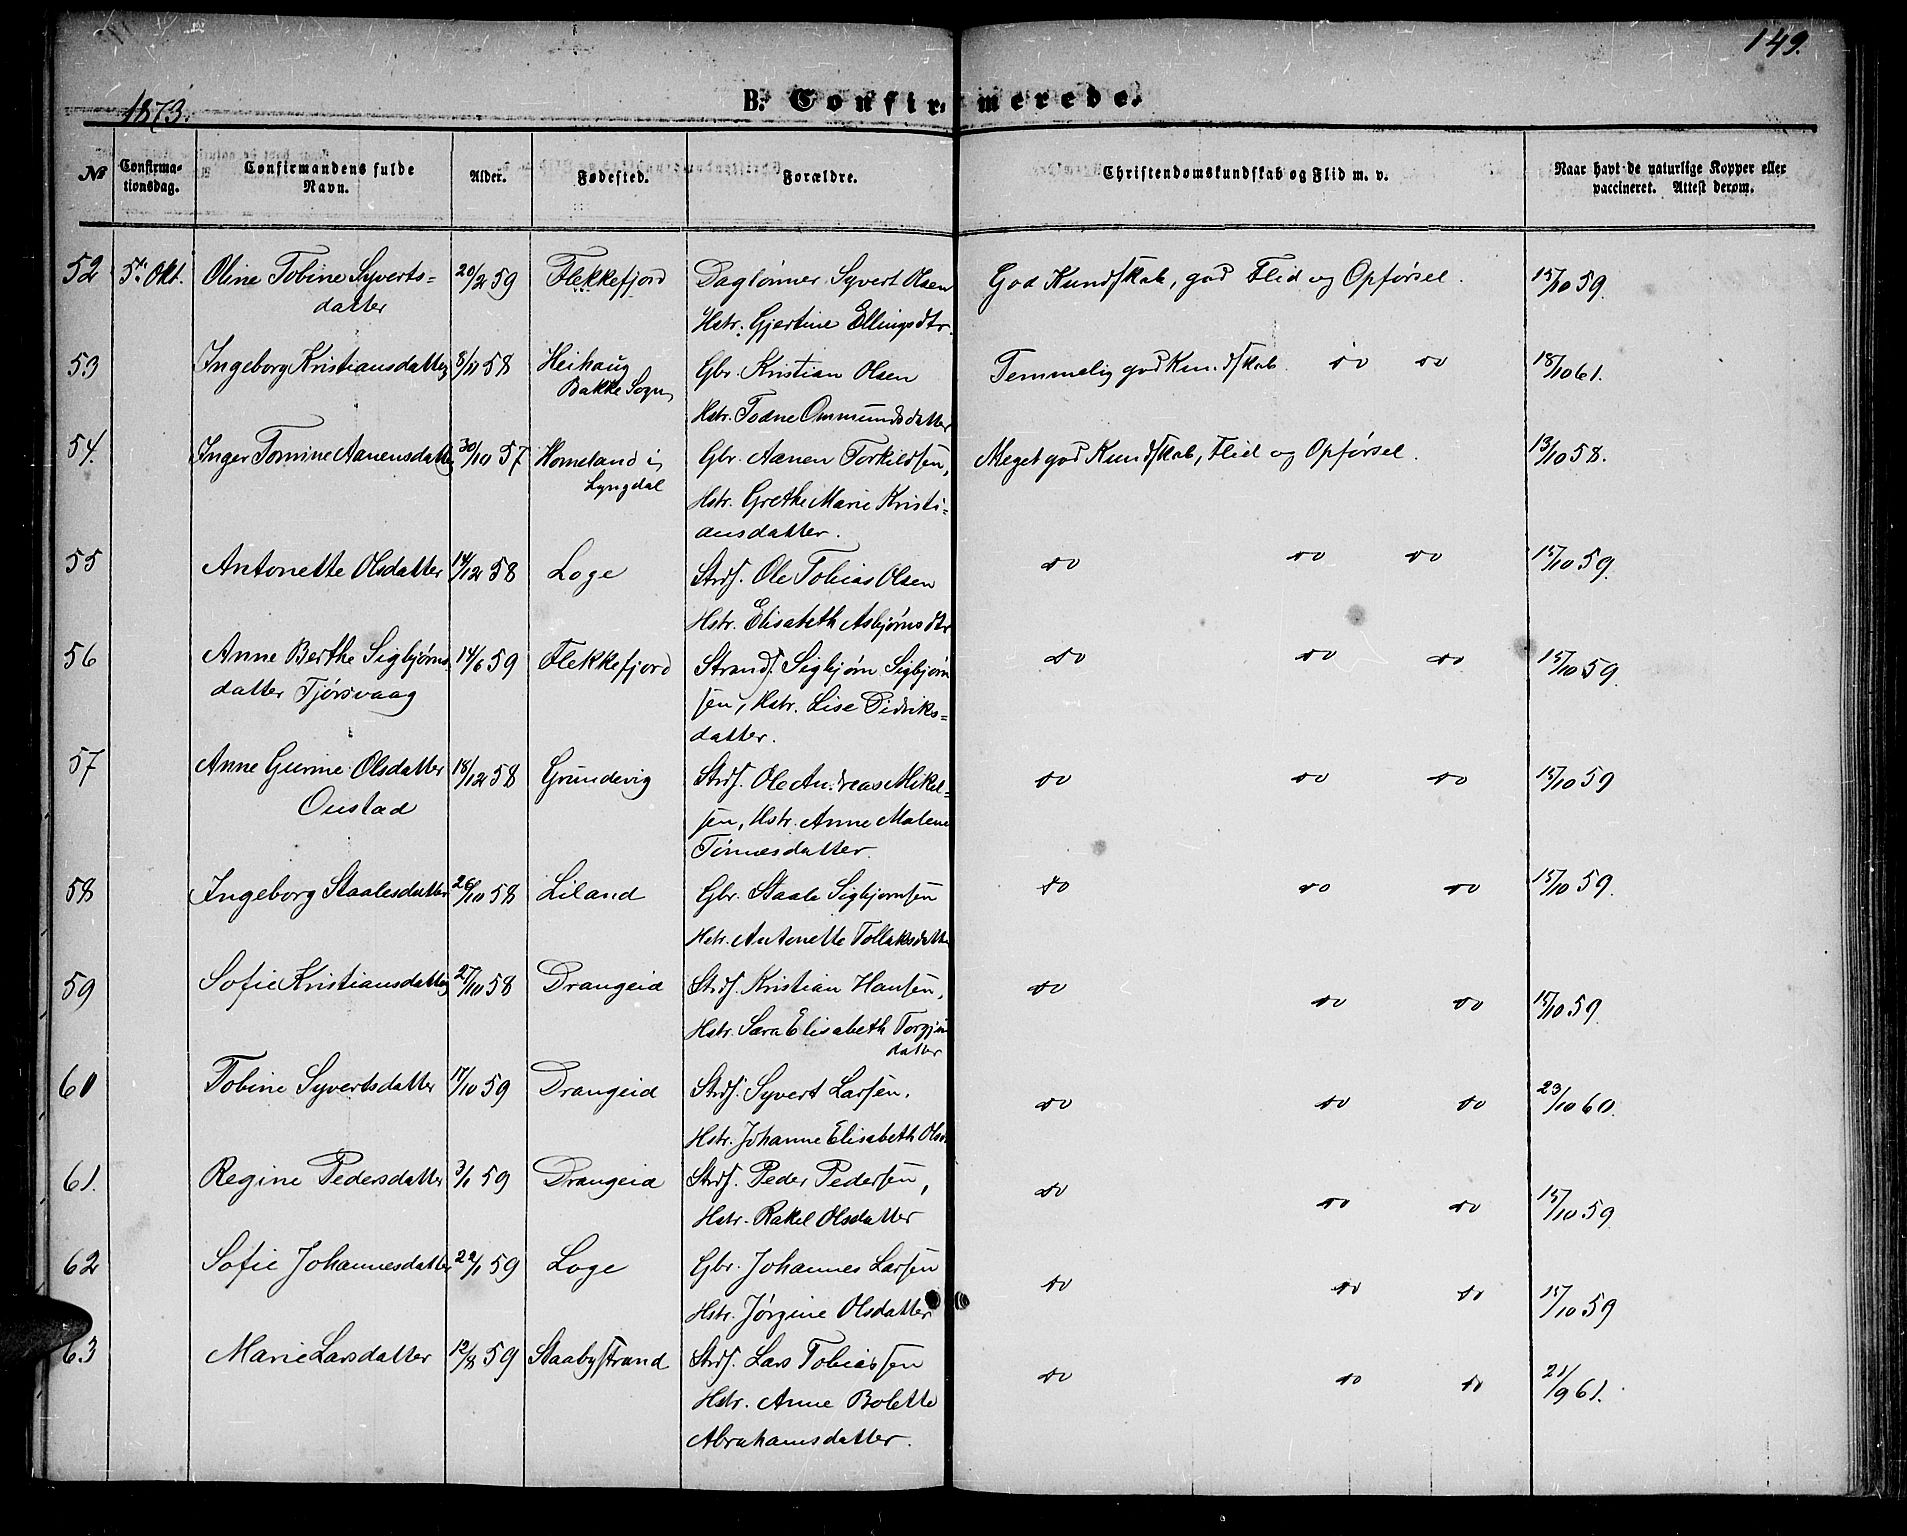 149.
1873.
B. Confirmerede.
No
Confirma-
tionsdag.
Confirmandens fulde
Navn.
Alder.
Fødested.
Forældre.
Christendomskundskab og Flid m. v.
Naar havt de naturlige Kopper eller
vaccineret. Attest derom.
52 5te Okt. Oline Tobine Syverts= 20/2 59 Flekkefjord Daglønner Syvert Olsen God Kundskab, god Flid og Opførsel. 15/10 59.
datter Hstr. Gjertine Ellingsdtr.
53 Ingeborg Kristiansdatter 3/11 58 Heihaug Gbr. Kristian Olsen Temmelig god Kundskab do do 18/10 61.
Bakke Sogn Hstr. Todne Ommundsdatter
54. Inger Tomine Aanensdatter 30/10 57 Homeland i Gbr. Aanen Torkildsen, Meget god Kundskab, Flid og Opførsel. 13/10 58.
Lyngdal Hstr. Grethe Marie Kristi-
ansdatter.
55 Antonette Olsdatter 14/12 58 Loge Strds. Ole Tobias Olsen do do do 15/10 59.
Hstr. Elisabeth Asbjørnsdtr
56 Anne Berthe Sigbjørns 14/6 59 Flekkefjord Strands. Sigbjørn Sigbjørn do do do 15/10 59.
datter Tjørsvaag sen, Hstr. Lise Didriks=
datter.
57 Anne Gurine Olsdatter 18/12 58 Grundevig Strds. Ole Andreas Mikel= do do do 15/10 59
Oustad sen, Hstr. Anne Malene
Tønnesdatter.
58 Ingeborg Staalesdatter 26/10 58 Liland Gbr. Staale Sigbjørnsen do do do 15/10 59.
Hstr. Antonette Tollaksdatter
59 Sofie Kristiansdatter 27/10 58 Drangeid Strds. Kristian Hansen, do do do 15/10 59.
Hstr. Sara Elisabeth Torgjus
datter
60 Tobine Syvertsdatter 17/10 59 Drangeid Strds. Syvert Larsen. do do do 23/10 60.
Hstr. Johanne Elisabeth Olsd.
61. Regine Pedersdatter 3/1 59 Drangeid Strds. Peder Pedersen, do do do 15/10 59.
Hstr. Rakel Olsdatter
62 Sofie Johannesdatter 22/1 59 Loge Gbr. Johannes Larsen do do do 15/10 59
Hstr. Jørgine Olsdatter
63 Marie Larsdatter 12/8 59 Staabystrand Strds. Lars Tobiassen do do do 21/9 61.
Hstr. Anne Bolette
Abrahamsdatter.